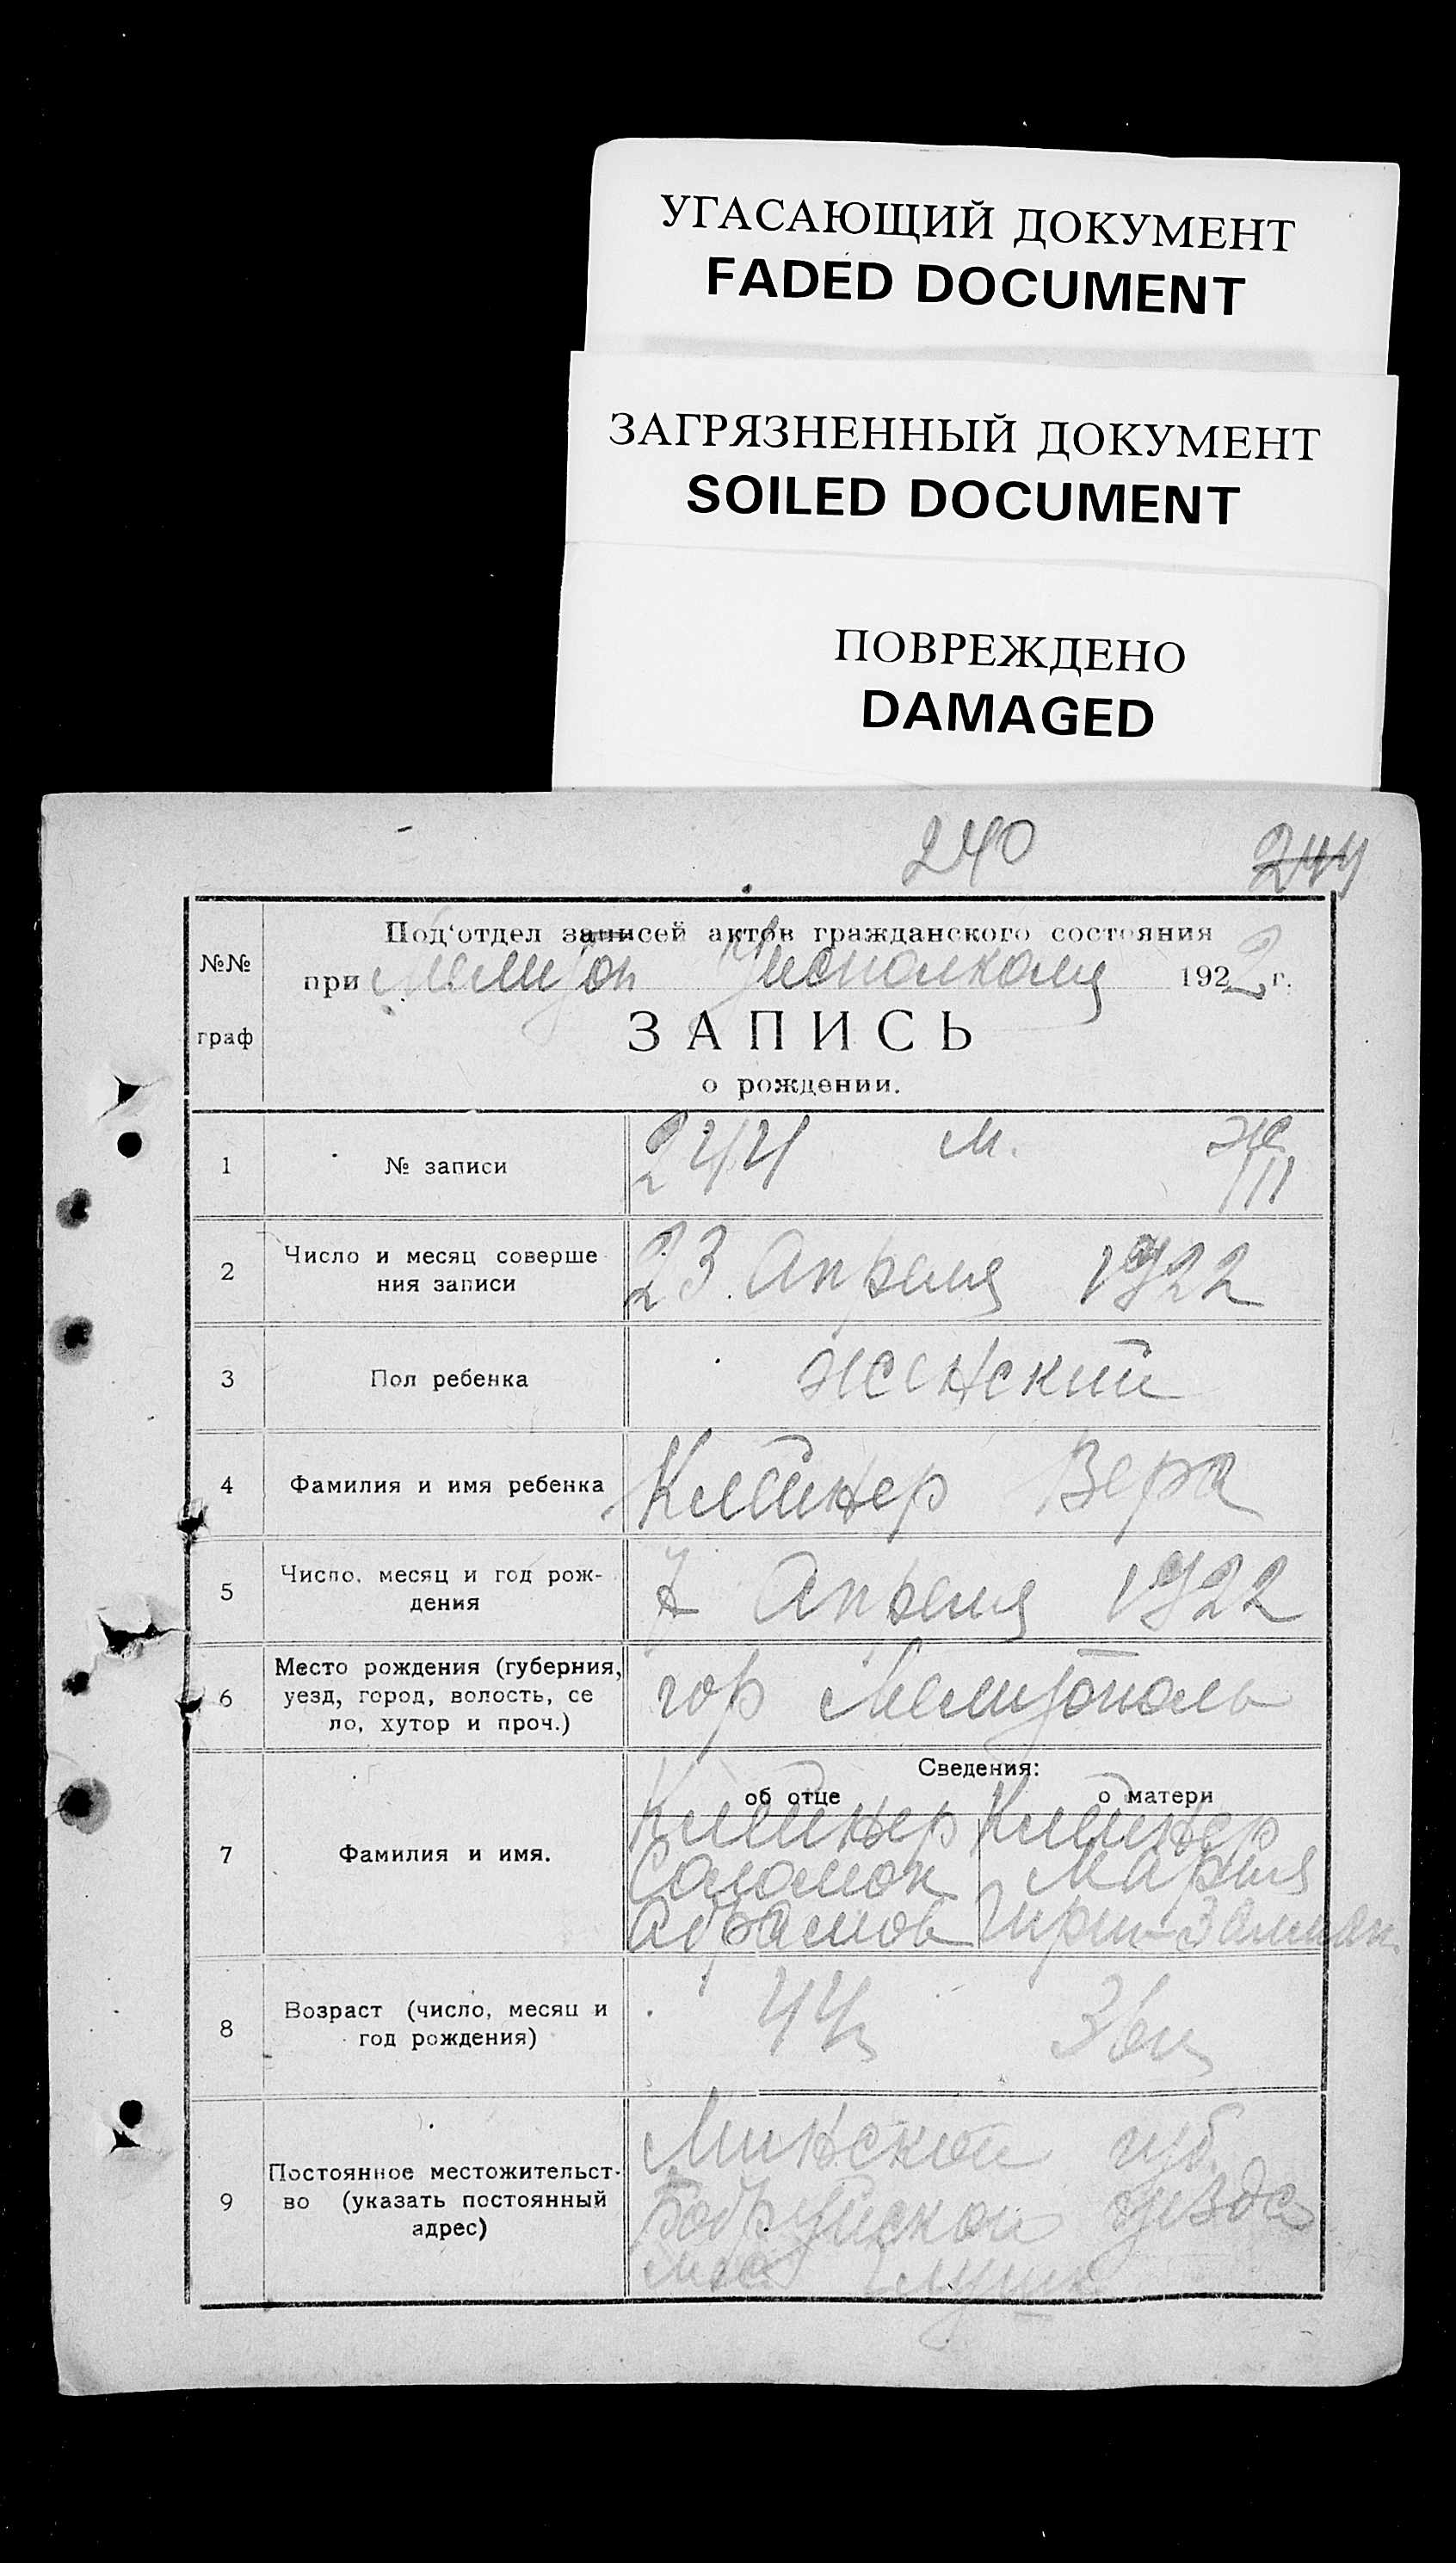 УГАСАЮЩИЙ ДОКУМЕНТ
FADED DOCUMENT
ЗАГРЯЗНЕННЫЙ ДОКУМЕНТ
SOILED DOCUMENT
ПОВРЕЖДЕНО
DAMAGED
240 244
№№ граф
Под'отдел записей актов гражданского состояния
при Мелитоп Уисполкома 1922 г.
ЗАПИСЬ
о рождении.
1 № записи 244 м. ж III
2 Число и месяц соверше
ния записи 23 Апреля 1922
3 Пол ребенка женский
4 Фамилия и имя ребенка Клейнер Вера
5 Число, месяц и год рож-
дения 7 Апреля 1922
6 Место рождения (губерния,
уезд, город, волость, се
ло, хутор и проч.) гор Мелитополь
Сведения:
об отце о матери
7 Фамилия и имя. Клейнер Клейнер
Соломон Мария
Абрамов Гирш-Залман.
8 Возраст (число, месяц и
год рождения) 44 36
9 Постоянное местожительст-
во (указать постоянный
адрес) Минской губ.
Бобруйской уезда
мес Глуск